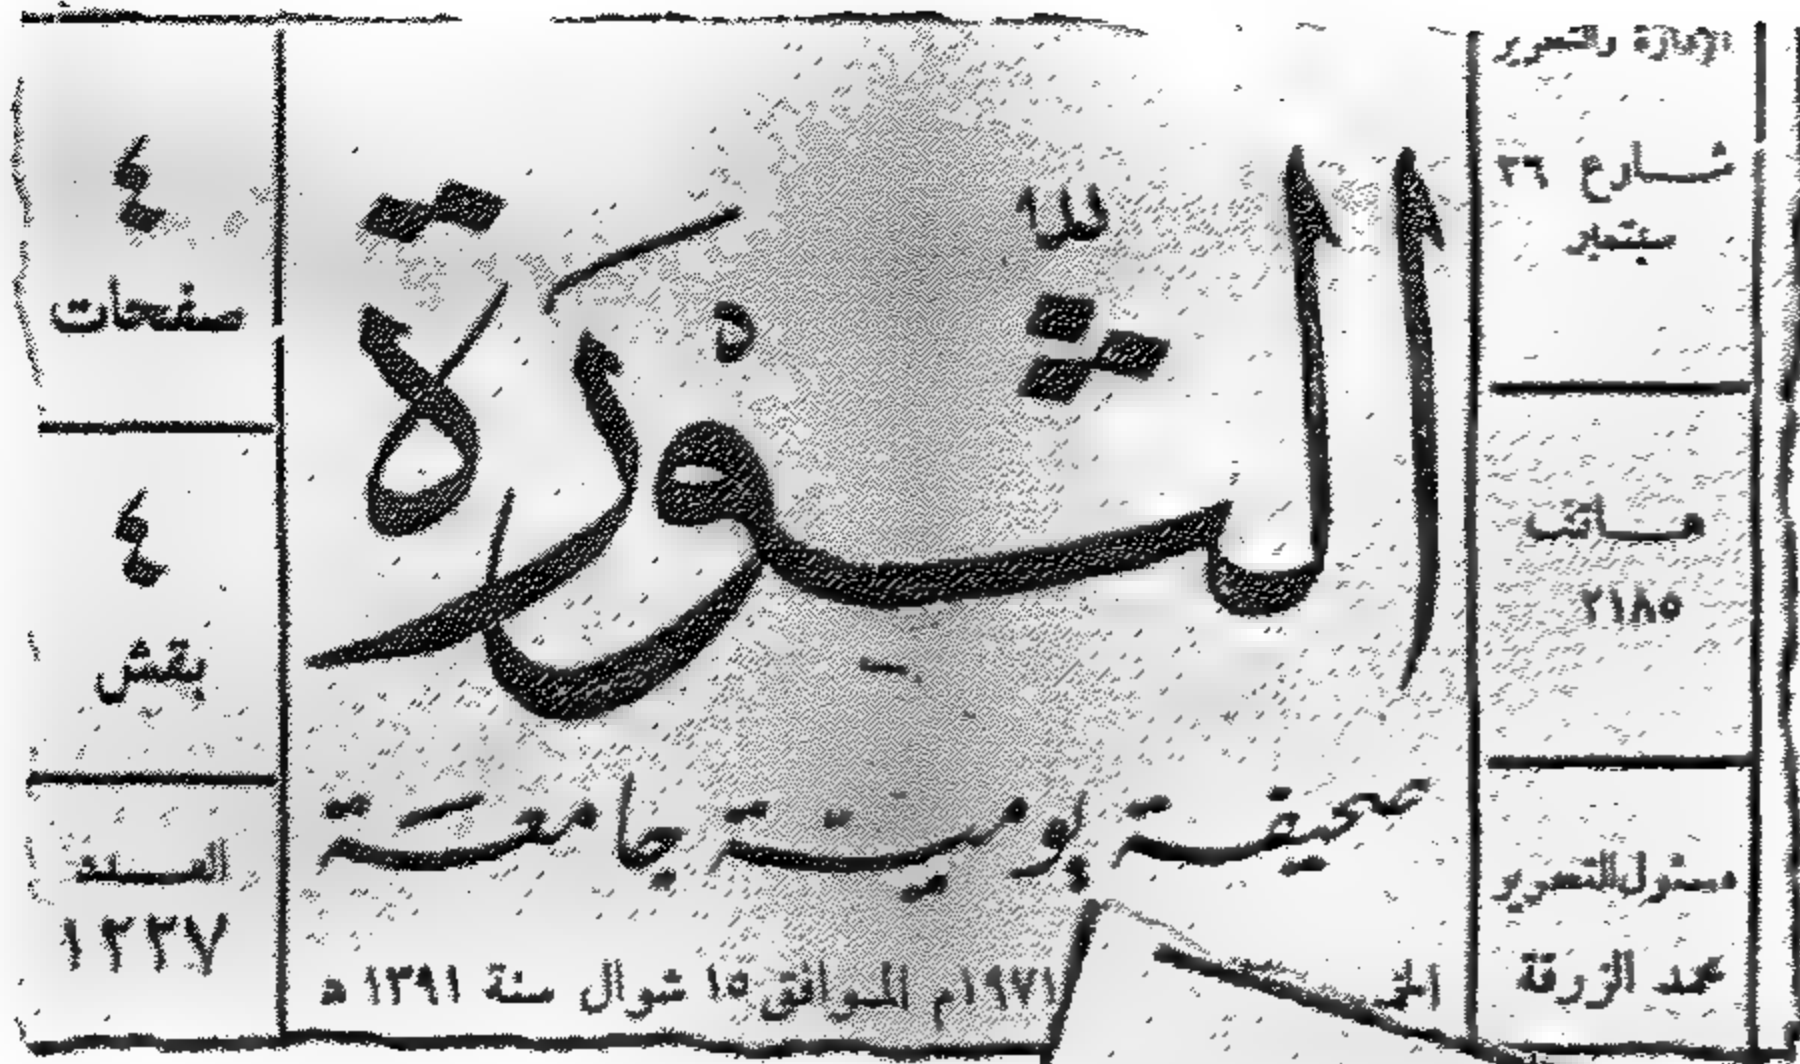 الإدارة والتحرير
شارع ٢٦
سبتمبر
هاتف
٢١٨٥
مسئول التحرير
محمد الزرقة
الثورة
صحيفة يومية جامعة
١٩٧١م الموافق ١٥ شوال سنة ١٣٩١ هـ
٤
صفحات
٤
بقش
١٢٣٧